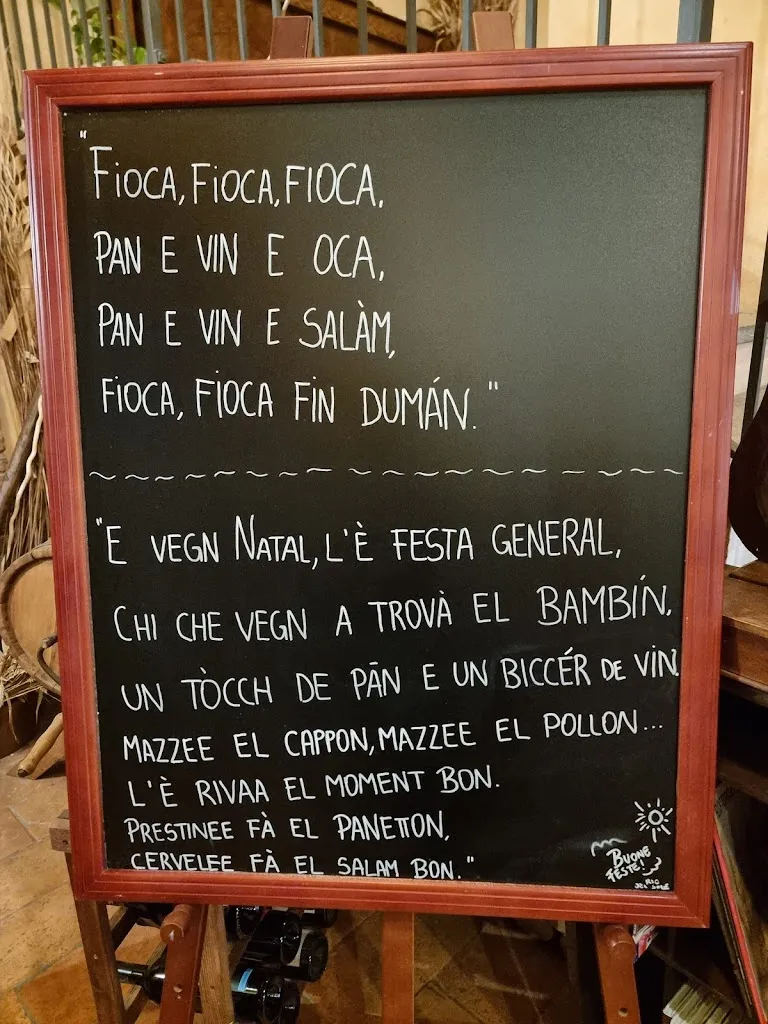 "Fioca, Fioca, FIOCA,
PAN E VIN E OCA,
PAN E VIN E SALÀM,
FIOCA, FIOCA FIN DUMÁN."
"E VEGN NATAL, L'È FESTA GENERAL,
CHI CHE VEGN A TROVÀ EL BAMBÍN,
UN TÒCCH DE PĀN E UN BICCÉR DE VIN
MAZZEE EL CAPPON, MAZZEE EL POLLON...
L'È RIVAA EL MOMENT BON.
PRESTINEE FÀ EL PANETTON,
CERVELEE FÀ EL SALAM BON."
BUONE
FESTE!